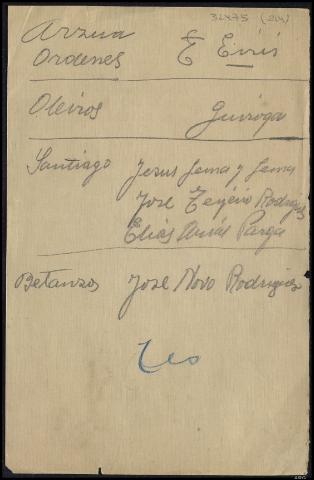 32475 (204)
Arzua
Ordenes E
Oleiros Quiroga
Santiago Jesus Lema y Lema
Jose Teijeiro Rodrigez
Elias Parga
Betanzos Jose Novo Rodriguez
Teo